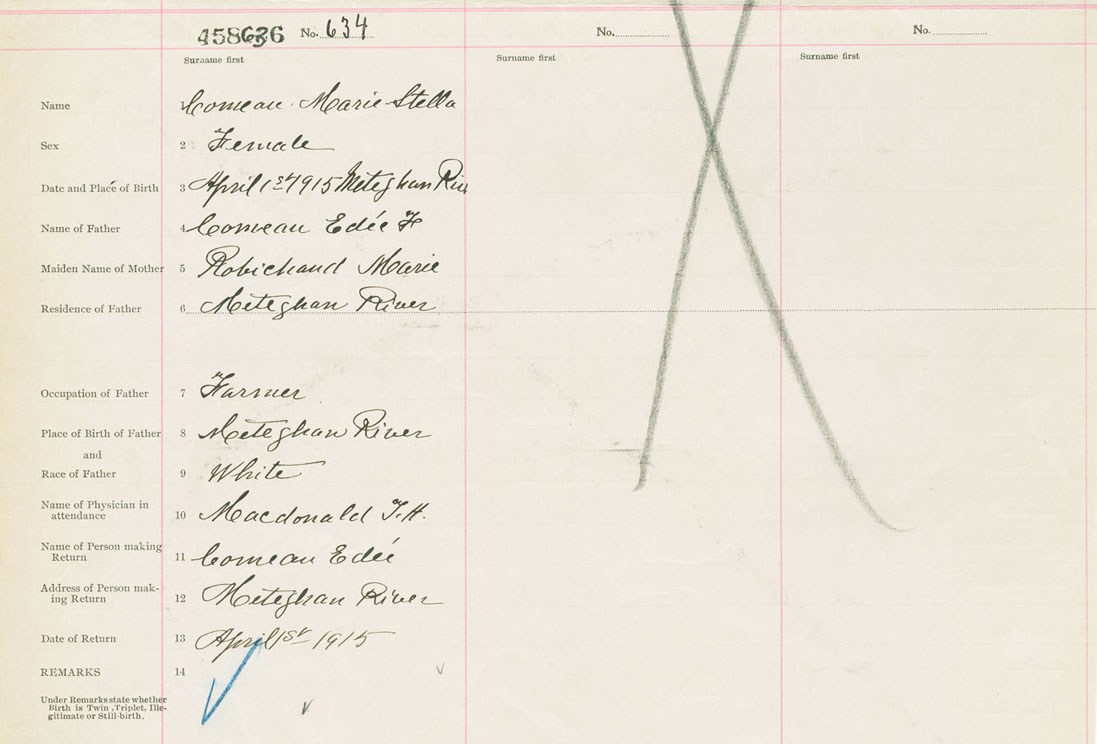 458636 No. 634 No. No.
Surname first Surname first Surname first
Name 1 Comeau Marie Stella
Sex 2 Female
Date and Place of Birth 3 April 1st 1915 Meteghan Riv
Name of Father 4 Comeau Edée F
Maiden Name of Mother 5 Robichaud Marie
Residence of Father 6 Meteghan River
Occupation of Father 7 Farmer
Place of Birth of Father 8 Meteghan River
and
Race of Father 9 White
Name of Physician in
attendance 10 Macdonald T.H.
Name of Person making
Return 11 Comeau Edée
Address of Person mak-
ing Return 12 Meteghan River
Date of Return 13 April 1st 1915
REMARKS 14
Under Remarks state whether
Birth is Twin, Triplet, Ille-
gitimate or Still-birth.